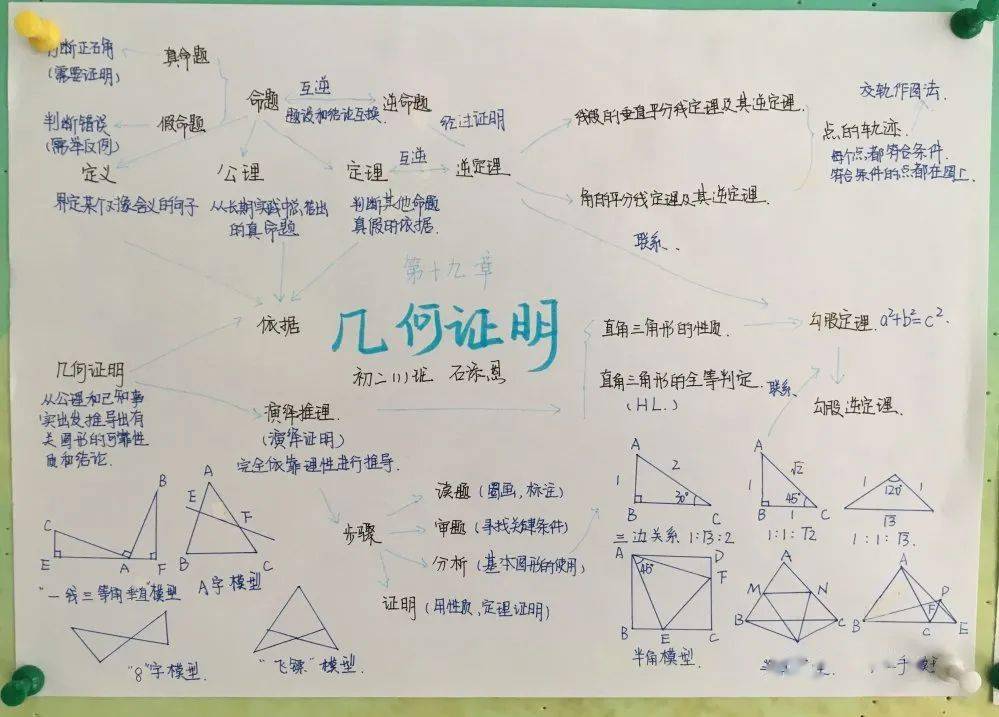 判断正确
(需要证明)
真命题
判断错误
(需举反例)
假命题
命题
互逆
题设和结论互换.
逆命题
经过证明
定义
界定某个对象含义的句子
公理
从长期实践中总结出
的真命题
定理
判断其他命题
真假的依据.
互逆
逆定理
线段的垂直平分线定理及其逆定理.
角的平分线定理及其逆定理.
交轨作图法.
点的轨迹.
每个点都符合条件.
符合条件的点都在图上.
联系、
第十九章
几何证明
初二(1)班 石添恩
依据
几何证明
从公理和已知事
实出发推导出有
关图形的可靠性
质和结论.
演绎推理.
(演绎证明)
完全依靠理性进行推导.
直角三角形的性质.
勾股定理. a²+b²=c².
直角三角形的全等判定.
(HL.)
联系、
勾股逆定理、
步骤
读题 (圈画,标注)
审题 (寻找关键条件)
分析 (基本图形的使用)
证明 (用性质,定理证明)
A
1
2
30°
B
C
三边关系 1:√3:2
A
1
√2
45°
B
1
C
1:1:√2
1
120°
1
√3
1:1:√3.
C
B
E
A
F
"一线三等角垂直"模型
A
E
F
B
C
A字模型
"8"字模型.
"飞镖"模型.
A
D
45°
F
B
E
C
半角模型.
A
M
N
B
C
A
D
F
B
C
E
手